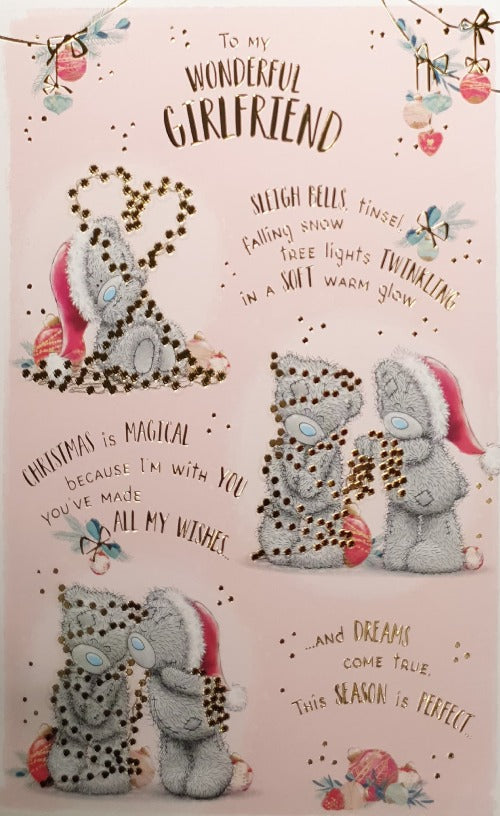 To my
WONDERFUL
GIRLFRIEND
SLEIGH BELLS, tinsel,
falling snow
tree lights TWINKLING
in a SOFT warm glow
CHRISTMAS is MAGICAL
because I'm with YOU
you've made
ALL MY WISHES...
...and DREAMS
come true.
This SEASON is PERFECT...